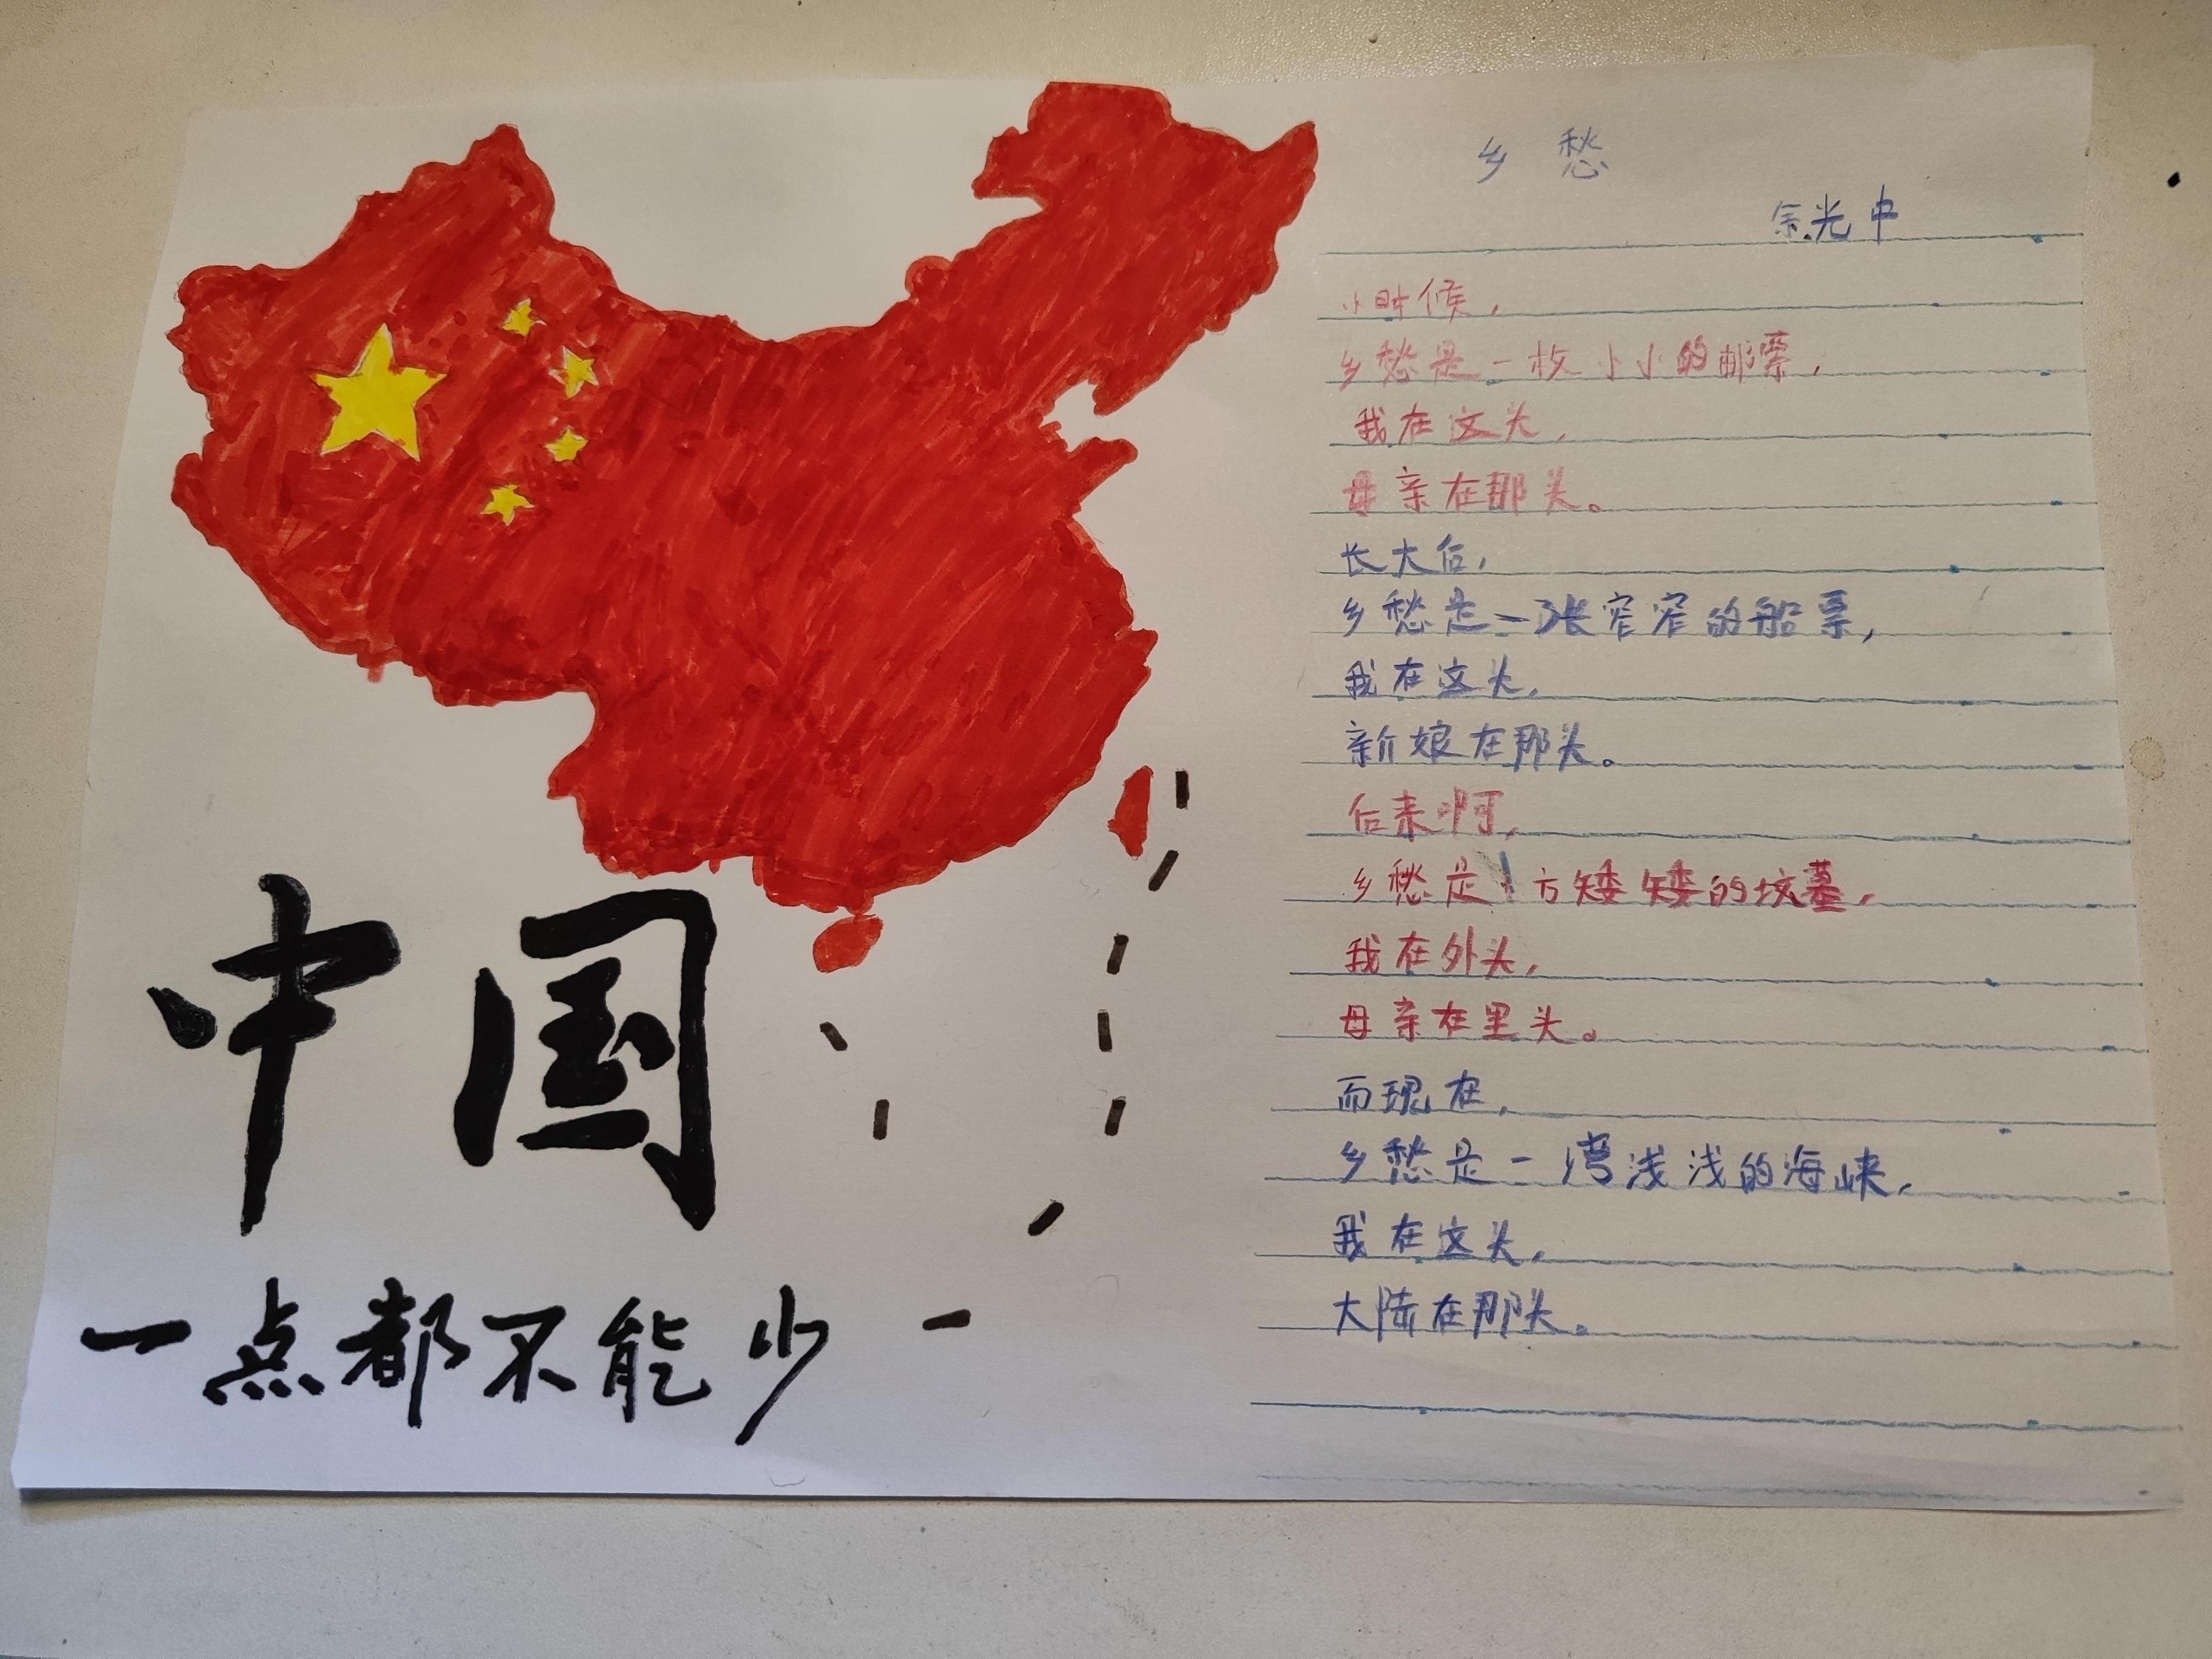 中国
一点都不能少
乡愁
余光中
小时候，
乡愁是一枚小小的邮票，
我在这头，
母亲在那头。
长大后，
乡愁是一张窄窄的船票，
我在这头，
新娘在那头。
后来啊，
乡愁是一方矮矮的坟墓，
我在外头，
母亲在里头。
而现在，
乡愁是一湾浅浅的海峡，
我在这头，
大陆在那头。